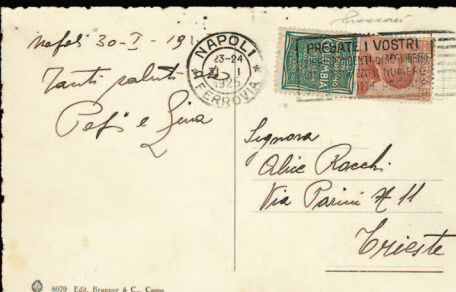 Napoli 30-I-191
Tanti saluti da
Pepi e Gina
NAPOLI
23-24
A FERROVIA
PREGATE I VOSTRI
IL NUMERO
Signora
Alice Rocchi
Via Parini N 11
Trieste
8079 Edit. Brunner & C., Como